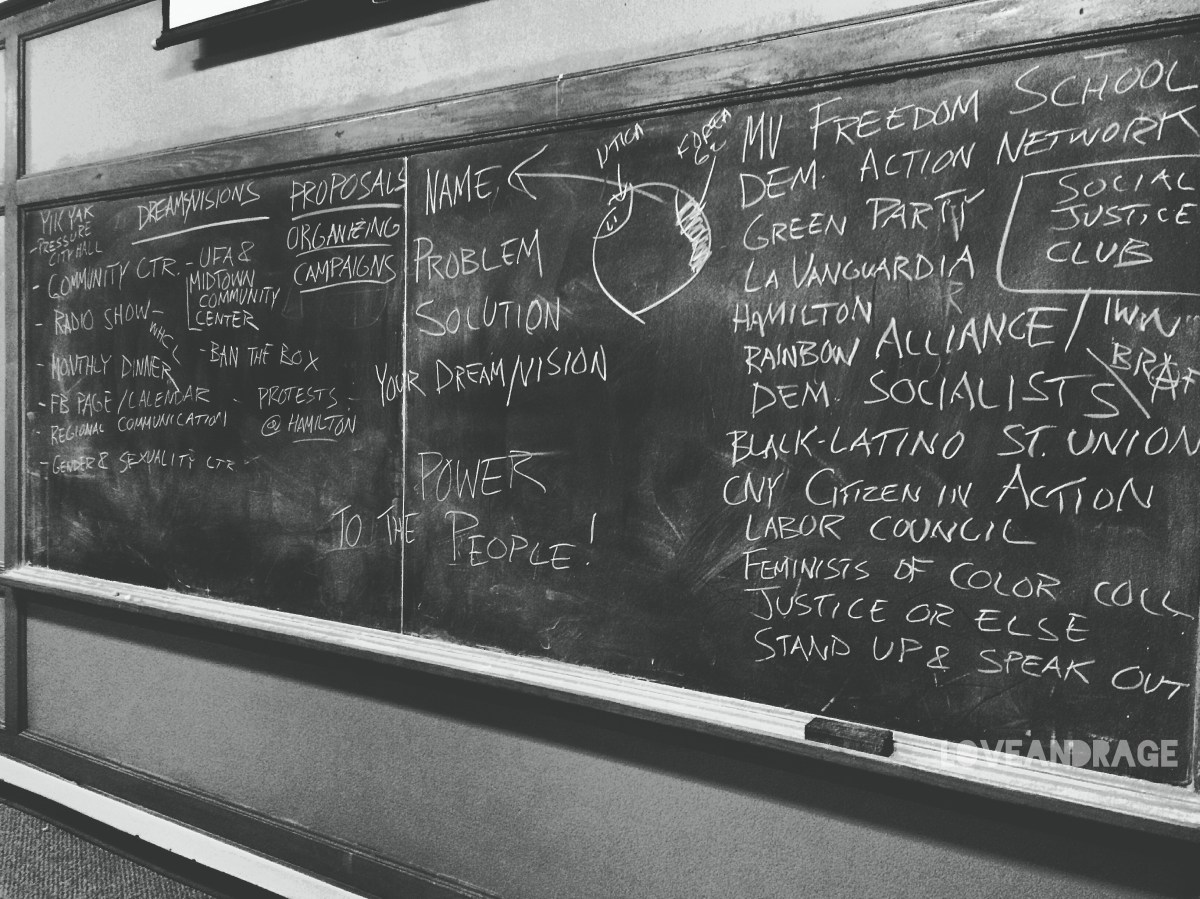 YIK YAK
- PRESSURE
CITY HALL
- COMMUNITY CTR.
- RADIO SHOW -
WHCL
- MONTHLY DINNER
- FB PAGE/CALENDAR -
- REGIONAL COMMUNICATION
- GENDER & SEXUALITY CTR -
DREAMS/VISIONS
- UFA &
MIDTOWN
COMMUNITY
CENTER
- BAN THE BOX
PROPOSALS
ORGANIZING
CAMPAIGNS
PROTESTS -
@ HAMILTON
NAME
PROBLEM
SOLUTION
YOUR DREAM/VISION
POWER
TO THE PEOPLE!
UTICA
MV FREEDOM SCHOOL
DEM. ACTION NETWORK
GREEN PARTY
LA VANGUARDIA
HAMILTON
RAINBOW ALLIANCE/
DEM. SOCIALISTS
BLACK-LATINO ST. UNION
CNY CITIZEN IN ACTION
LABOR COUNCIL
FEMINISTS OF COLOR COLL
JUSTICE OR ELSE
STAND UP & SPEAK OUT
SOCIAL
JUSTICE
CLUB
LOVEANDRAGE